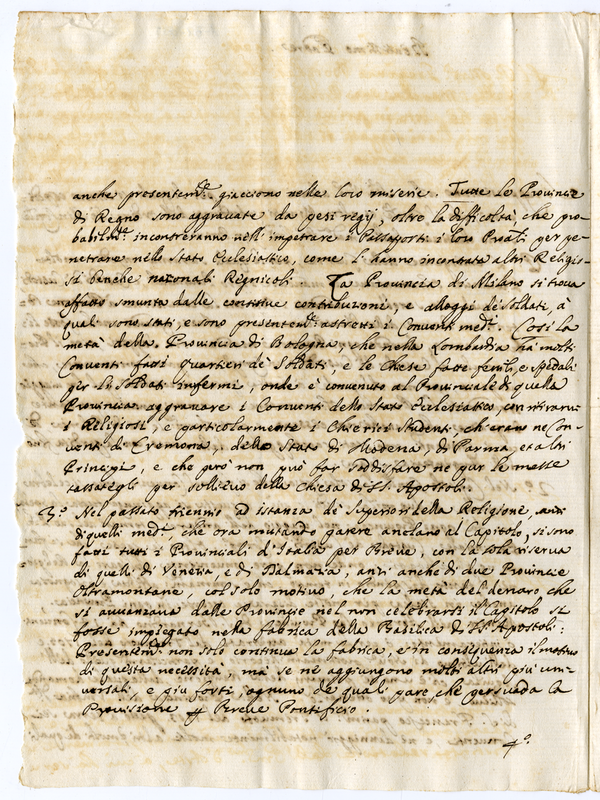 anche presentemte. giacciono nelle loro miserie. Tutte le Provincie
di Regno sono aggravate da pesi regij, oltre la difficoltà, che pro-
babilmte. incontreranno nell'impetrare i Passaporti i loro Proali per pe-
netrare nello Stato Ecclesiastico, come l'hanno incontrata altri Religio-
si benche nazionali Regnicoli. La Provincia di Milano si trova
affatto smunta dalle continue contribuzioni, e alloggi de Soldati, a
quali sono stati, e sono presentemte. astretti i Conventi medi. Così la
metà della Provincia di Bologna, che nella Lombardia hà molti
Conventi fatti quartieri de Soldati, e le Chiese fatte fenili, e spedali
per li Soldati infermi, onde è convenuto al Provinciale di quella
Provincia aggravare i Conventi dello Stato Ecclesiastico, con ritirarvi
i Religiosi, e particolarmente i Chierici Studenti, ch'erano ne Con-
venti di Cremona, dello Stato di Modena, di Parma, et altri
Principi, e che però non può far sodisfare ne pur le messe
tassategli per sollievo della Chiesa di SS. Apostoli.
3.° Nel passato triennio ad istanza de Superiori della Religione, anzi
di quelli medi. che ora mutando parere anelano al Capitolo, si sono
fatti tutti i Provinciali d'Italia per Breve, con la sola riserva
di quelli di Venezia, e di Dalmazia, anzi anche di due Provincie
Oltramontane, col solo motivo, che la metà del denaro, che
si avvanzava dalle Provincie nel non celebrarsi il Capitolo si
fosse impiegato nella fabrica della Basilica di SS. Apostoli:
Presentemte. non solo continua la fabrica, e in conseguenza il motivo
di questa necessità, ma se ne aggiungono molti altri più uni-
versali, e più forti, ognuno de quali pare, che persuada la
Provisione per Breve Pontificio.
4.°